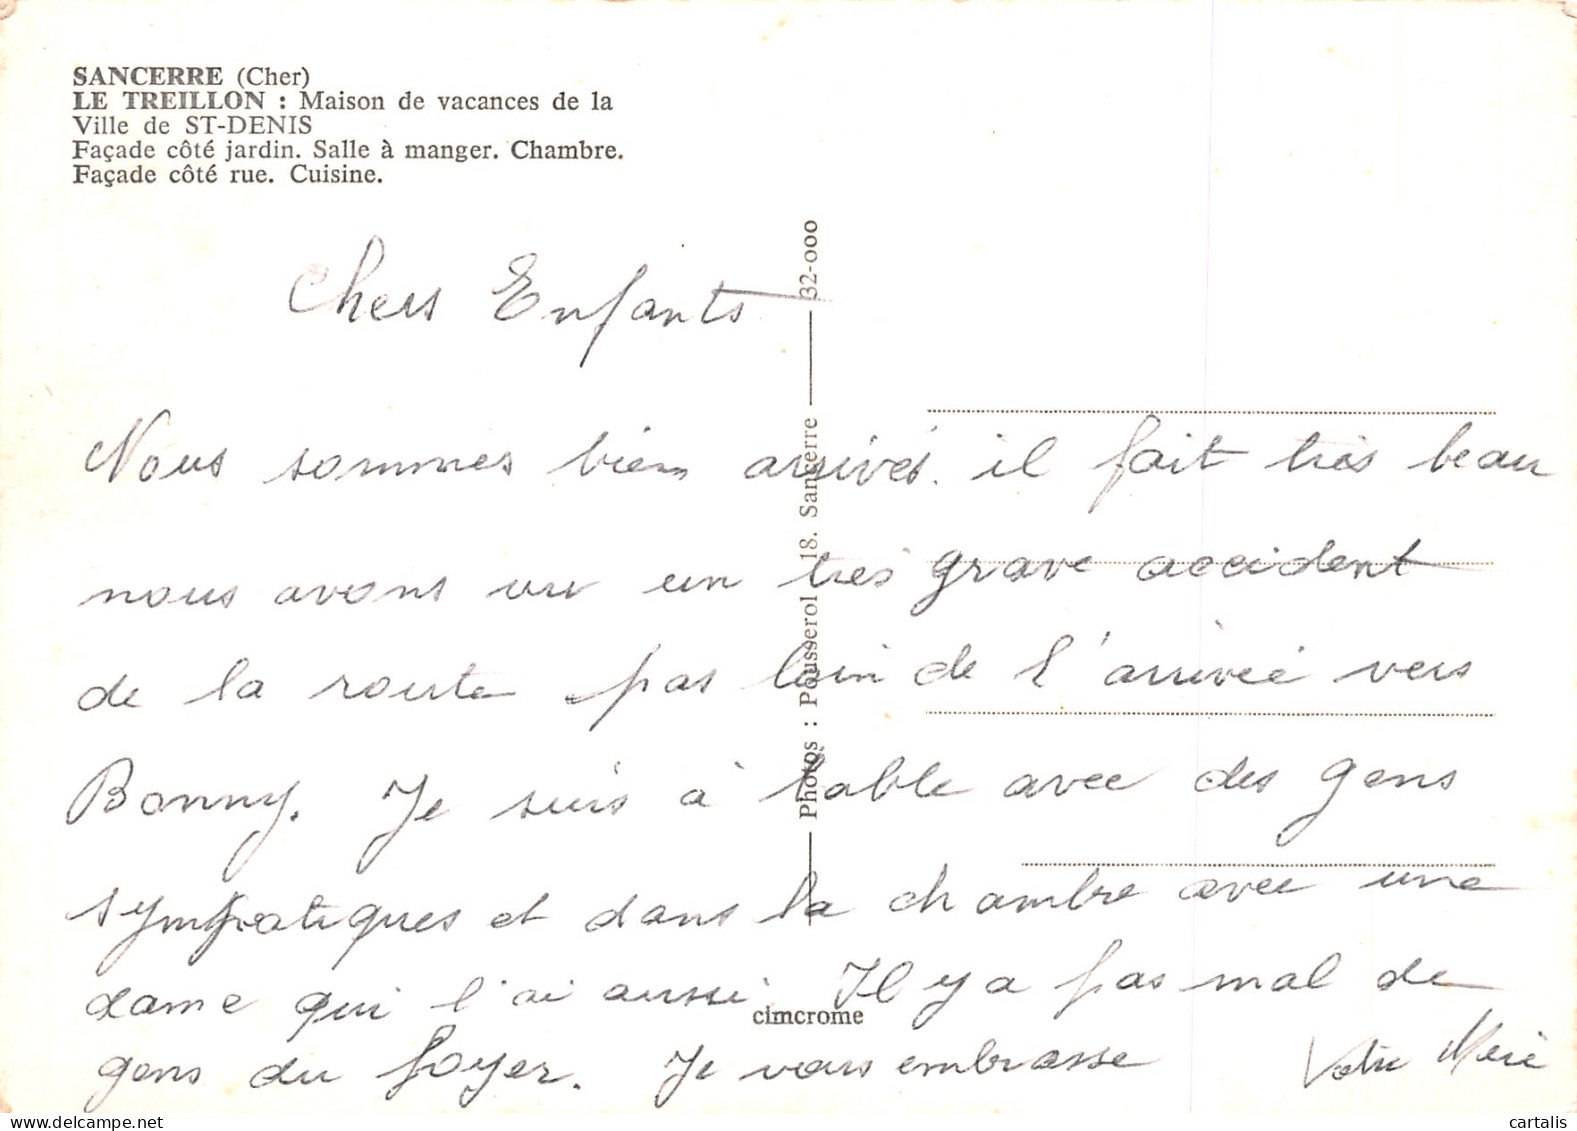 SANCERRE (Cher)
LE TREILLON : Maison de vacances de la
Ville de ST-DENIS
Façade côté jardin. Salle à manger. Chambre.
Façade côté rue. Cuisine.
Chers Enfants
Nous sommes bien arrivés. il fait très beau
nous avons vu un très grave accident
de la route pas loin de l'arrivée vers
Bonny. Je suis à table avec des gens
sympatiques et dans la chambre avec une
dame qui l'ai aussi. Il y a pas mal de
gens du foyer. Je vous embrasse Votre Mère
Photos : Pousserol 18. Sancerre 32-000
cimcrome
delcampe.net
cartalis